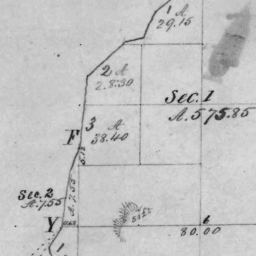 1 A
29.15
2 A
28.30
Sec. 1
A. 575.85
F
3 A
38.40
Sec. 2
A. 7.55
A. 7.55
Y
6
80.00
1